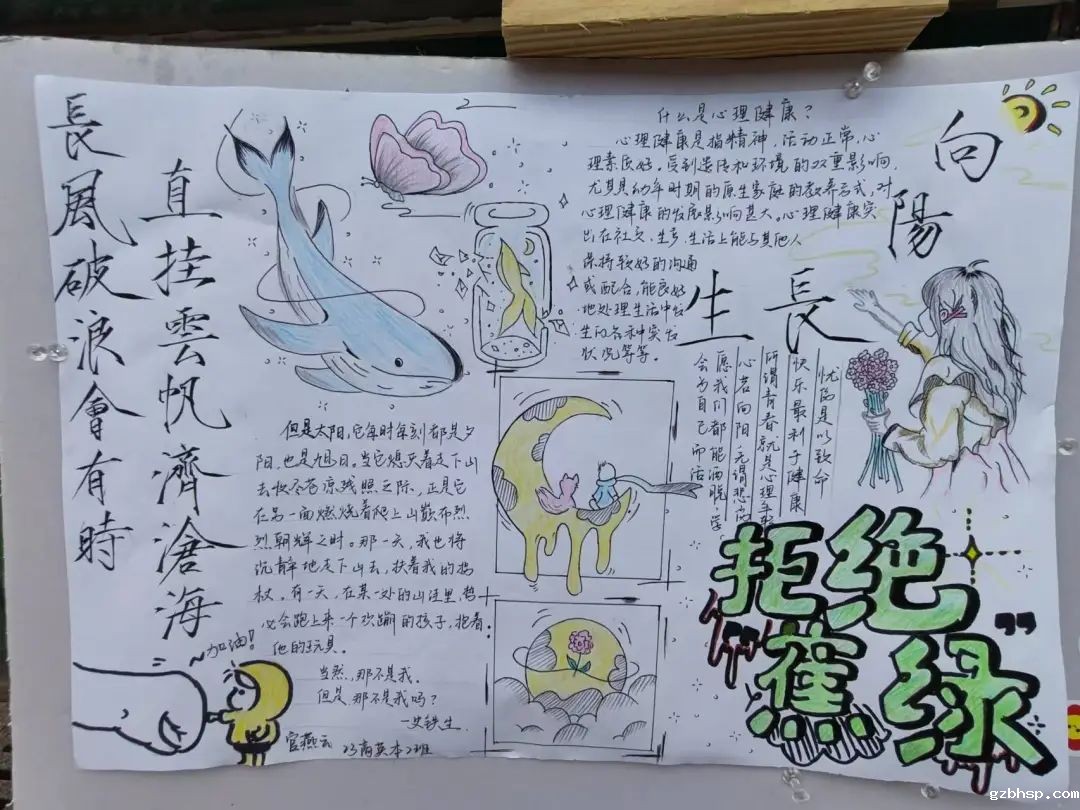 長風破浪會有時
直挂雲帆濟滄海
什么是心理健康？
心理健康是指精神，活动正常，心
理素质好，受到遗传和环境的双重影响，
尤其是幼年时期的原生家庭的教养方式，对
心理健康的发展影响甚大。心理健康突
出在社交、生产、生活上能与其他人
保持较好的沟通
或配合，能良好
地处理生活中发
生的各种突发
状况等等。
向
陽
生長
忧伤是以致命
快乐最利于健康
所谓青春就是心理年轻
心若向阳无谓悲伤
愿我们都能洒脱，学
会为自己而活
但是太阳，它每时每刻都是夕
阳，也是旭日。当它熄灭着走下山
去收尽苍凉残照之际，正是它
在另一面燃烧着爬上山巅布烈
烈朝辉之时。那一天，我也将
沉静地走下山去，扶着我的拐
杖。有一天，在某一处的山洼里，势
必会跑上来一个欢蹦的孩子，抱着
他的玩具。
当然，那不是我。
但是，那不是我吗？
—史铁生
加油！
官燕云 23商英本2班
拒绝
"蕉绿"
gzbhsp.com